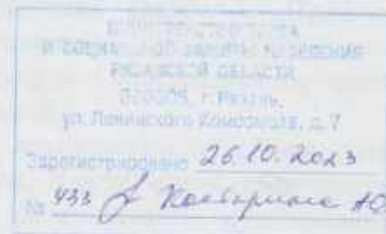 МИНИСТЕРСТВО ТРУДА
И СОЦИАЛЬНОЙ ЗАЩИТЫ НАСЕЛЕНИЯ
РЯЗАНСКОЙ ОБЛАСТИ
г. Рязань,
ул. Ленинского Комсомола, д. 7
Зарегистрировано 26.10.2023
№ 433